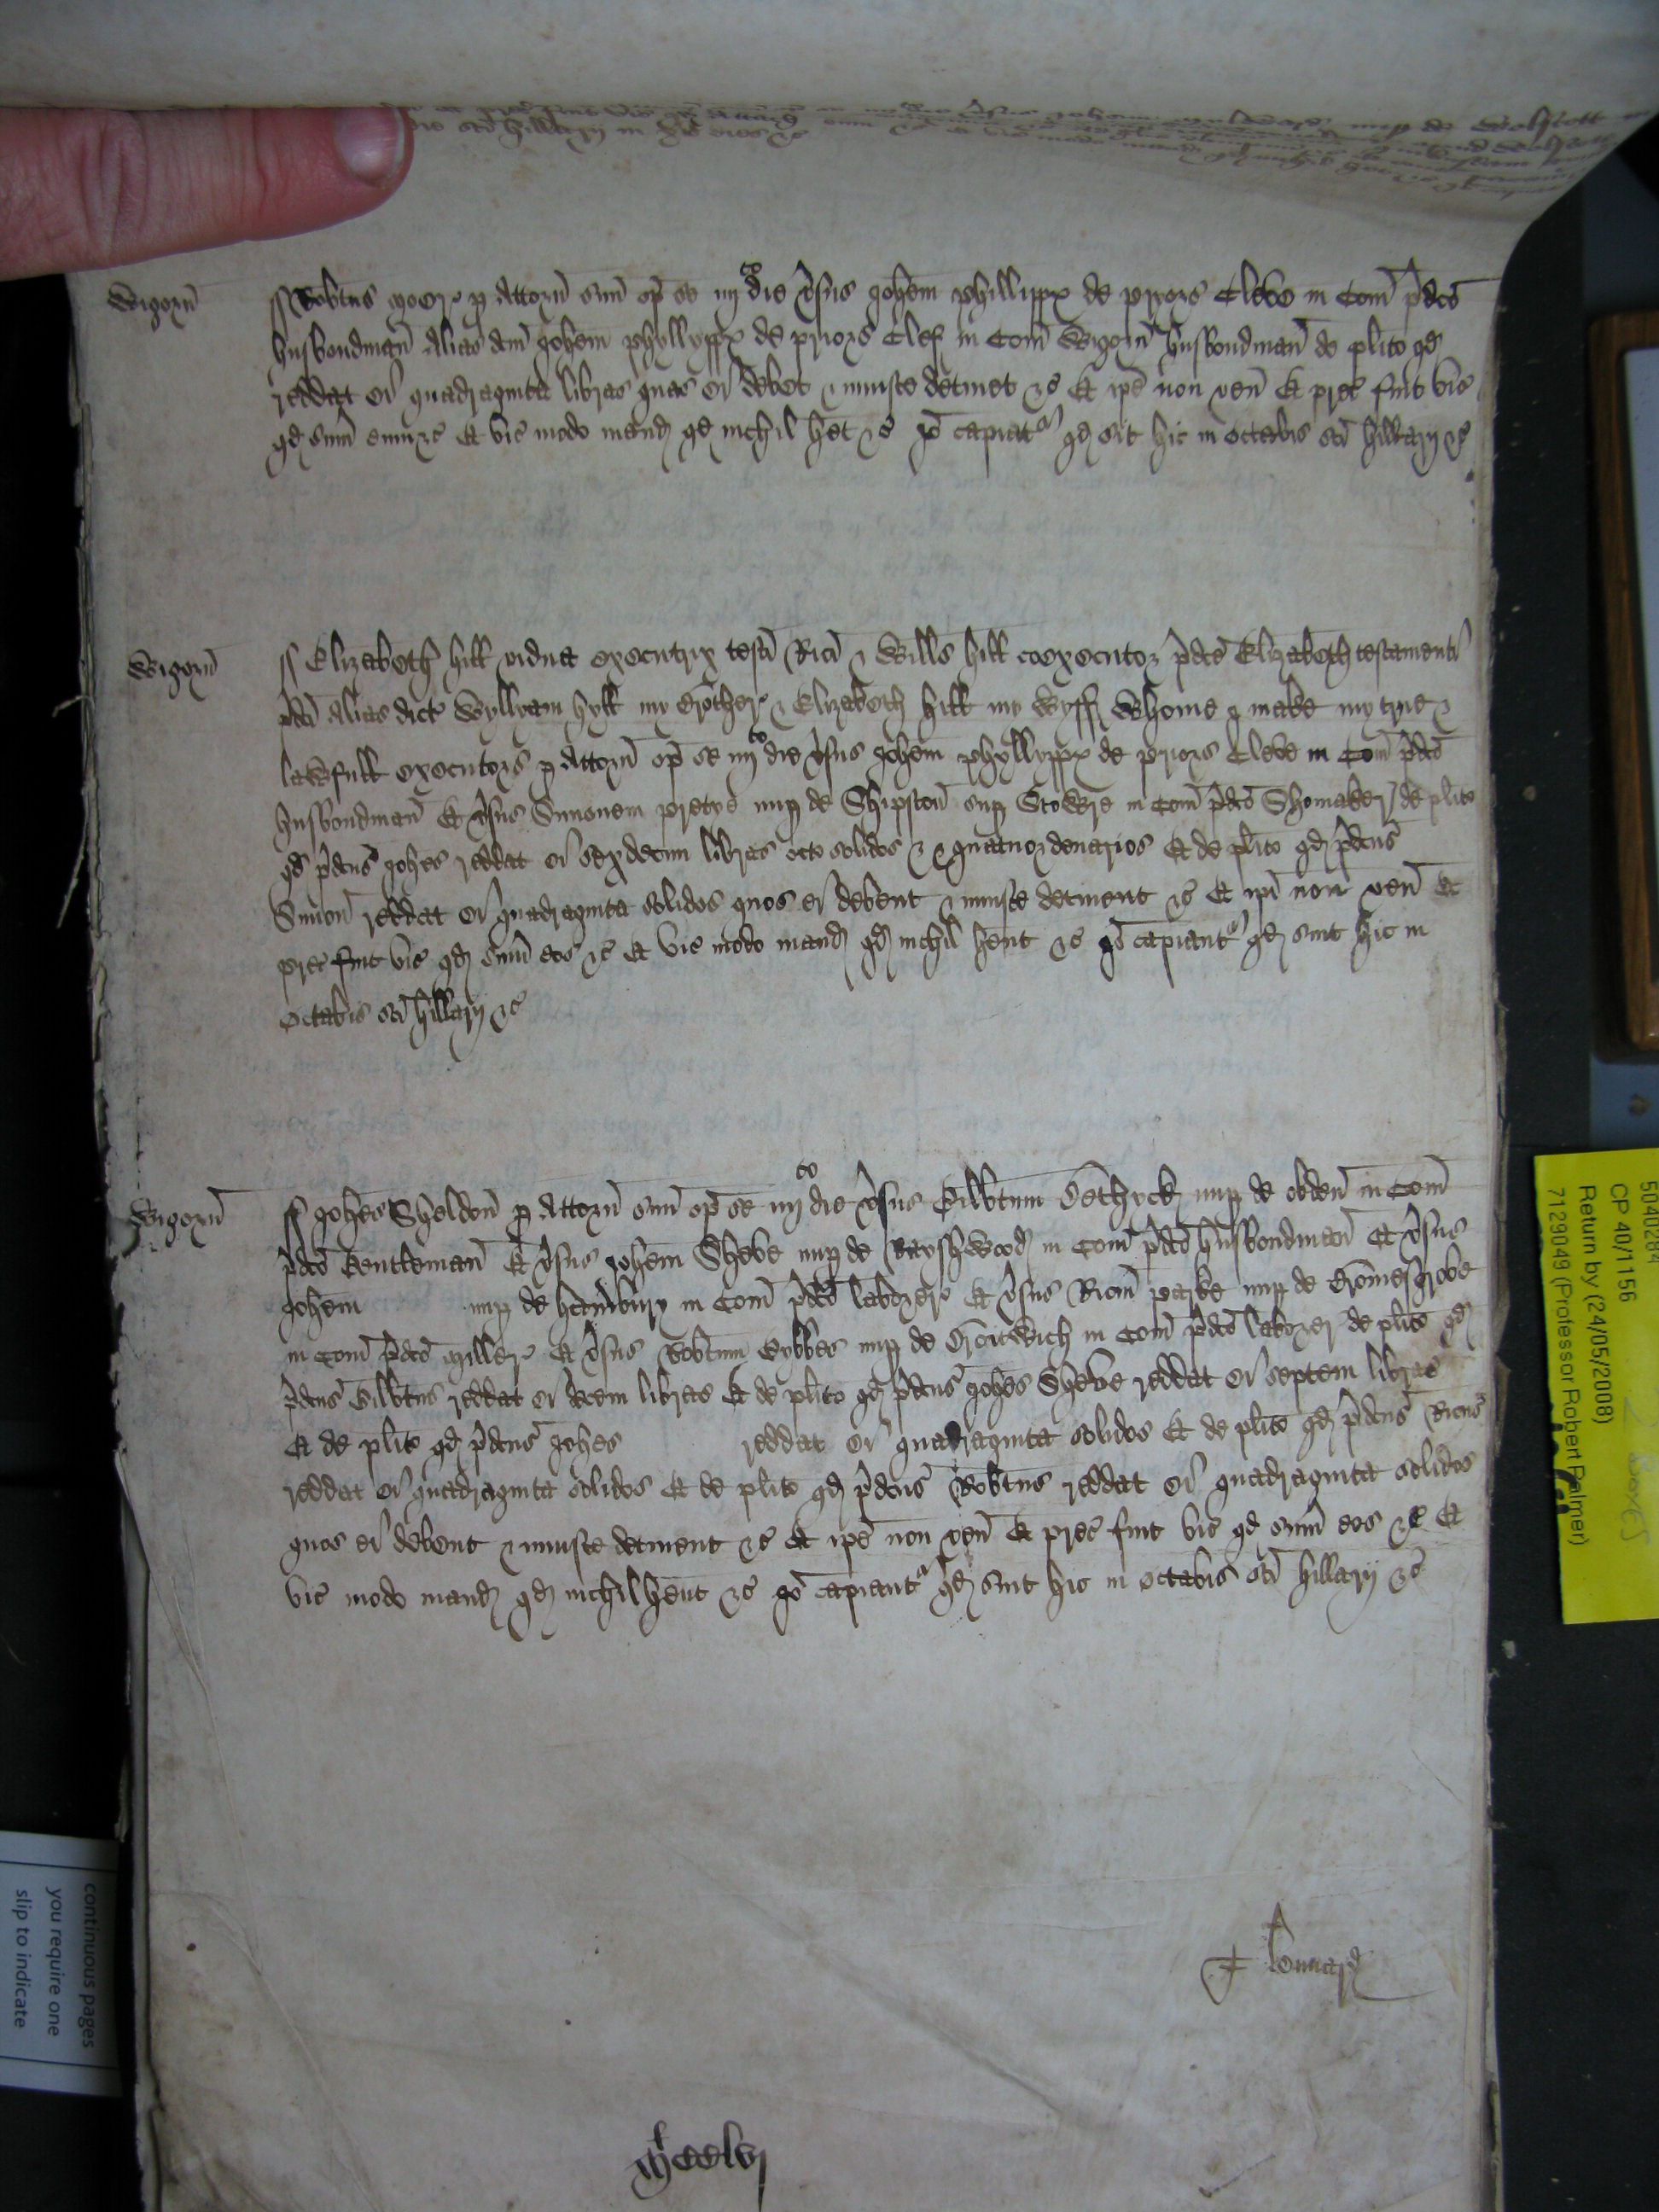 Wigorn
Robtus Moore p Attorn suu op se iiij to die vsus Johem Phillippx de Priors Cleve in Com pdco
husbondman Alias dcm Johem Phyllyppx de Priors Clef in Com Wigorn husbondman de plito qd
reddat ei quadraginta libras quas ei debet & iniuste detinet &c Et ipe non ven Et prec fuit vic
qd sum eum &c Et vic modo mand qd nichil het &c Io capiatr qd sit hic in octabis sci Hillarij &c
Wigorn
Elizabeth Hill vidua executrix testi Rici & Wills Hill coexecutor pdce Elizabeth testamenti
pdci Alias dict Wyllyam Hyll my Brother & Elizabeth Hill my Wyff Whome I make my true &
lawfull executors p Attorn op se iiij to die vsus Johem Phyllyppx de Priors Cleve in Com pdco
husbondman Et vsus Simonem nup de Shipston sup Stowre in Com pdco Shomaker de plito
qd pdcus Johes reddat ei sexdecim libras octo solidos & quatuor denarios Et de plito qd pdcus
Simon reddat ei quadraginta solidos quos ei debent & iniuste detinent &c Et ipi non ven Et
prec fuit vic qd sum eos &c Et vic modo mand qd nichil hent &c Io capiantr qd sint hic in
octabis sci Hillarij &c
Wigorn
Johes Sheldon p Attorn suu op se iiij to die vsus Gilbtum Dethyck nup de obden in Com
pdco Gentleman Et vsus Johem Sheve nup de Rayshwood in Com pdco husbondman Et vsus
Johem nup de Hambury in Com pdco laborer Et vsus Ricm Parke nup de Bromesgrove
in Com pdco Miller Et vsus Robtum Gybbes nup de Droitwich in Com pdco laborer de plito qd
pdcus Gilbtus reddat ei decem libras Et de plito qd pdcus Johes Sheve reddat ei septem libras
Et de plito qd pdcus Johes reddat ei quadraginta solidos Et de plito qd pdcus Ricus
reddat ei quadraginta solidos Et de plito qd pdcus Robtus reddat ei quadraginta solidos
quos ei debent & iniuste detinent &c Et ipi non ven Et prec fuit vic qd sum eos &c Et
vic modo mand qd nichil hent &c Io capiantr qd sint hic in octabis sci Hillarij &c
5040284
CP 40/1156
Return by (24/05/2008)
7129049 (Professor Robert Palmer)
continuous pages
you require one
slip to indicate